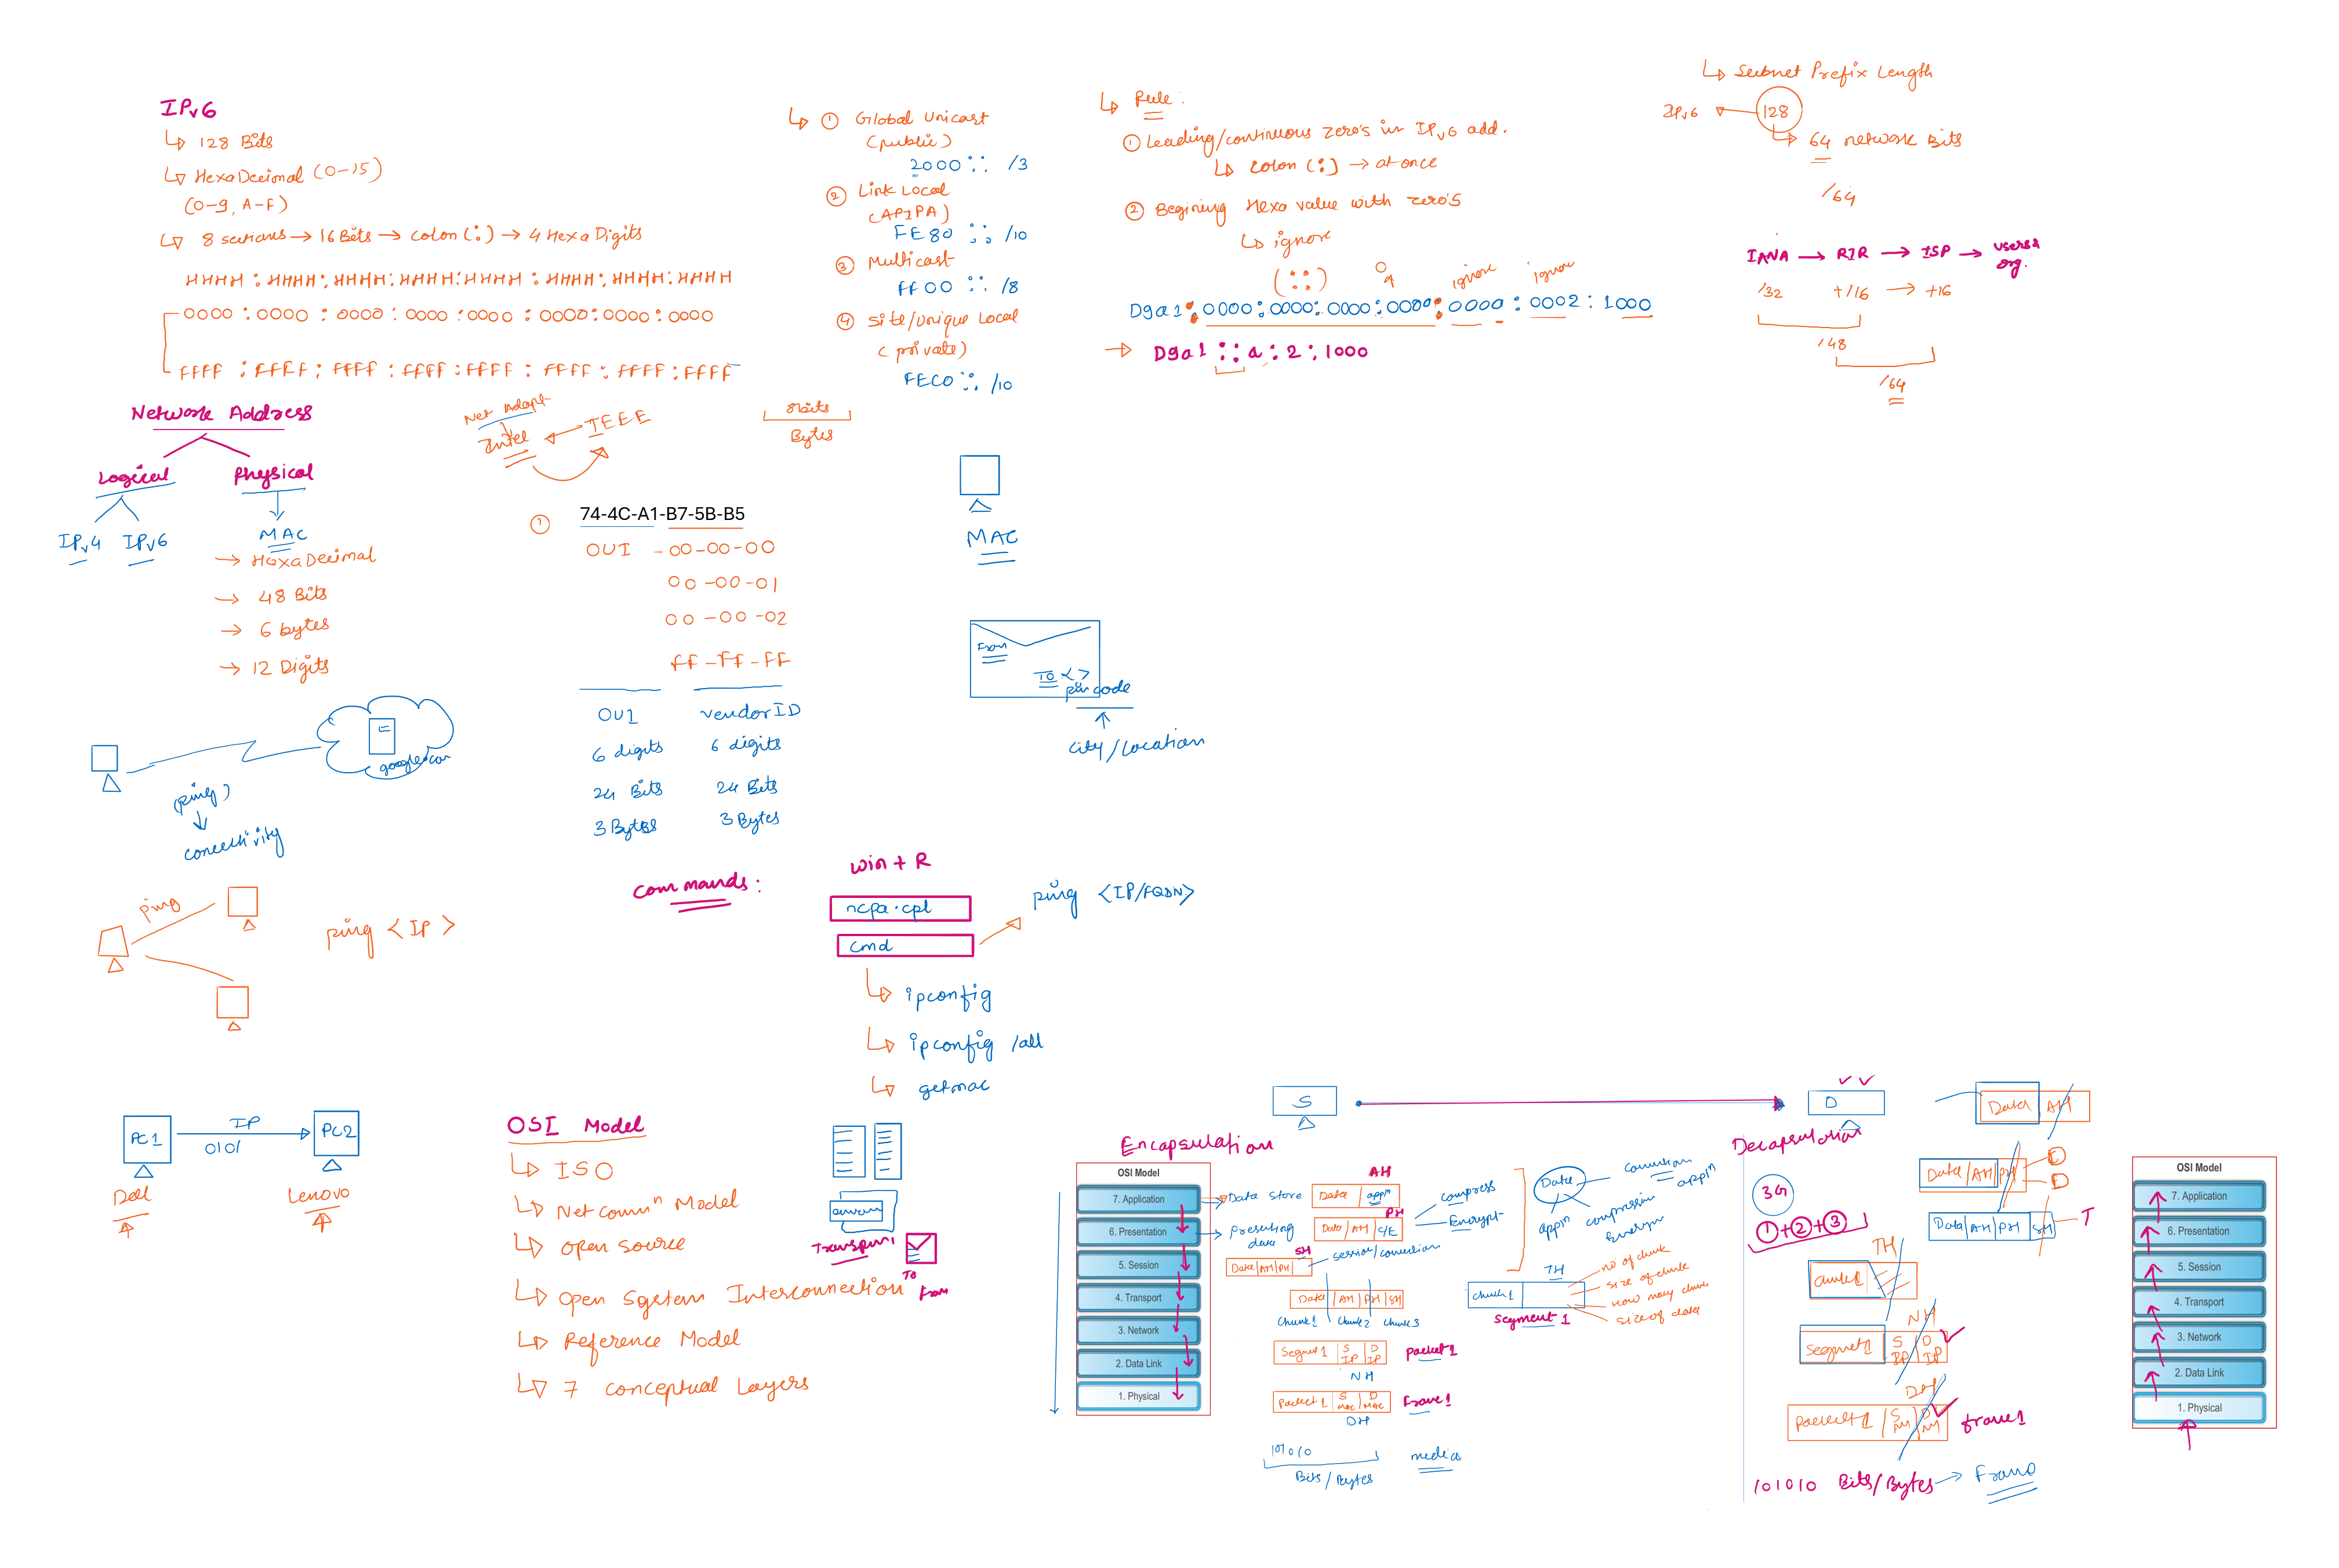 IPv6
128 Bits
HexaDecimal (0-15)
(0-9, A-F)
8 sections → 16 Bits → colon (:) → 4 Hexa Digits
HHHH : HHHH : HHHH : HHHH : HHHH : HHHH : HHHH : HHHH
0000 : 0000 : 0000 : 0000 : 0000 : 0000 : 0000 : 0000
FFFF : FFFF : FFFF : FFFF : FFFF : FFFF : FFFF : FFFF
① Global Unicast
(public)
2000 :: /3
② Link Local
(APIPA)
FE80 :: /10
③ Multicast
FF00 :: /8
④ Site/Unique Local
(private)
FEC0 :: /10
Rule :
① Leading/continuous zero's in IPv6 add.
colon (:) → at once
② Begining Hexa value with zero's
ignore
(::)
ignore
ignore
D9a1 : 0000 : 0000 : 0000 : 0000 : 000a : 0002 : 1000
→ D9a1 :: a : 2 : 1000
Subnet Prefix Length
IPv6
128
64 network Bits
/64
IANA → RIR → ISP → users & org.
/32 +/16 → +16
/48
/64
Network Address
Logical
Physical
IPv4
IPv6
MAC
→ HexaDecimal
→ 48 Bits
→ 6 bytes
→ 12 Digits
Net Adapt
Intel
IEEE
8bits
Bytes
①
74-4C-A1-B7-5B-B5
OUI - 00-00-00
00-00-01
00-00-02
FF-FF-FF
OUI
vendor ID
6 digits
6 digits
24 Bits
24 Bits
3 Bytes
3 Bytes
MAC
From
TO < >
pincode
city/location
google.com
(ping)
conectivity
ping
ping <IP>
commands :
win + R
ncpa.cpl
cmd
ping <IP/FQDN>
ipconfig
ipconfig /all
getmac
PC1
IP
0101
PC2
Dell
Lenovo
OSI Model
ISO
Net Commⁿ Model
open source
open System Interconnection
Reference Model
7 conceptual Layers
TO
From
S
D
Encapsulation
OSI Model
7. Application
6. Presentation
5. Session
4. Transport
3. Network
2. Data Link
1. Physical
Data Store
AH
Data | appⁿ
Presenting data
PH
Data | AH | C/E
compress
Encrypt
SH
Data | AH | PH
session/connection
Data | AH | PH | SH
Chunk1 Chunk2 Chunk3
Data
appⁿ
TH
Chunk1
no of chunk
size of chunk
how many chunk
size of data
Segment 1
Segment 1 | S IP | D IP
packet 1
NH
Packet 1 | S MAC | D MAC
Frame 1
DH
101010
Bits/Bytes
media
3G
①+②+③
Data | AH
Data | AH | PH
Data | AH | PH | SH
T
TH
chunk1
NH
Segment 1 | S IP | D IP
DH
Packet 1 | S M | D M
frame 1
101010 Bits/Bytes →
OSI Model
7. Application
6. Presentation
5. Session
4. Transport
3. Network
2. Data Link
1. Physical